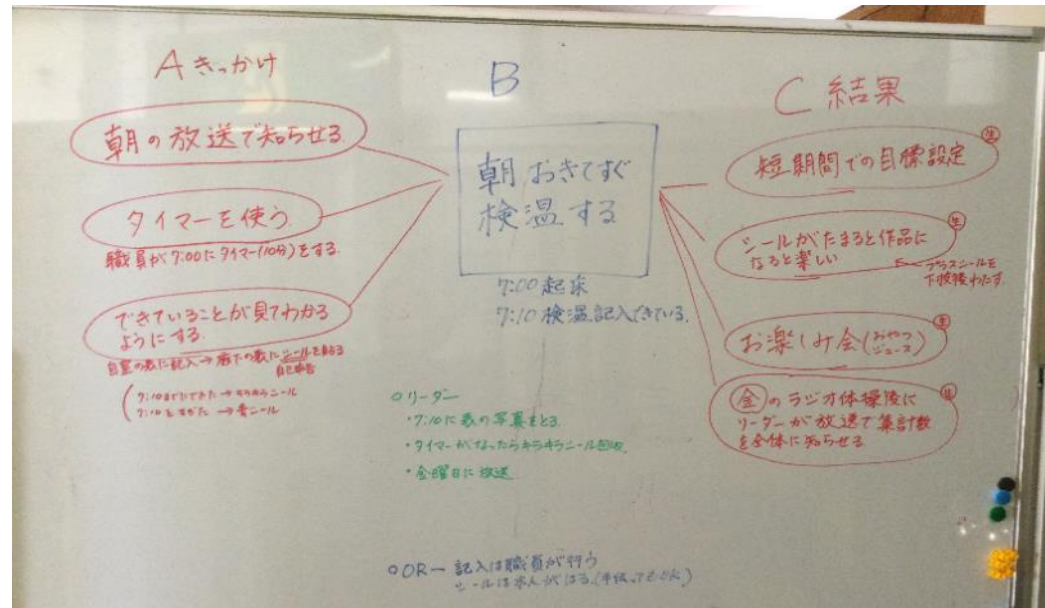 A きっかけ
朝の放送で知らせる
タイマーを使う
職員が7:00にタイマー(10分)をする.
できていることが見てわかる
ようにする
自室の表に記入→廊下の表にシールを貼る
自己申告
7:10までにできた→キラキラシール
7:10をすぎた→青シール
B
朝おきてすぐ
検温する
7:00起床
7:10検温.記入できている.
○リーダー
・7:10に表の写真をとる
・タイマーがなったらキラキラシール回収.
・金曜日に放送
○OR― 記入は職員が行う
シールは本人がはる.(手伝ってもOK)
C 結果
短期間での目標設定
シールがたまると作品に
なると楽しい
プラスシールを
下校後わたす.
お楽しみ会(おやつ
ジュース)
金のラジオ体操後に
リーダーが放送で集計数
を全体に知らせる